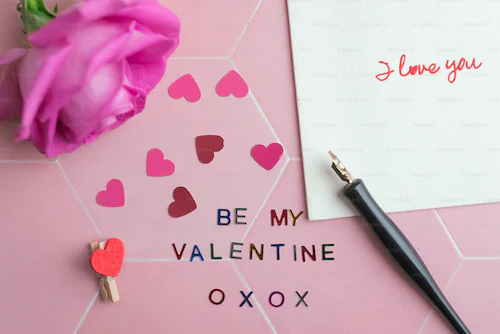 I love you
BE MY
VALENTINE
OXOX